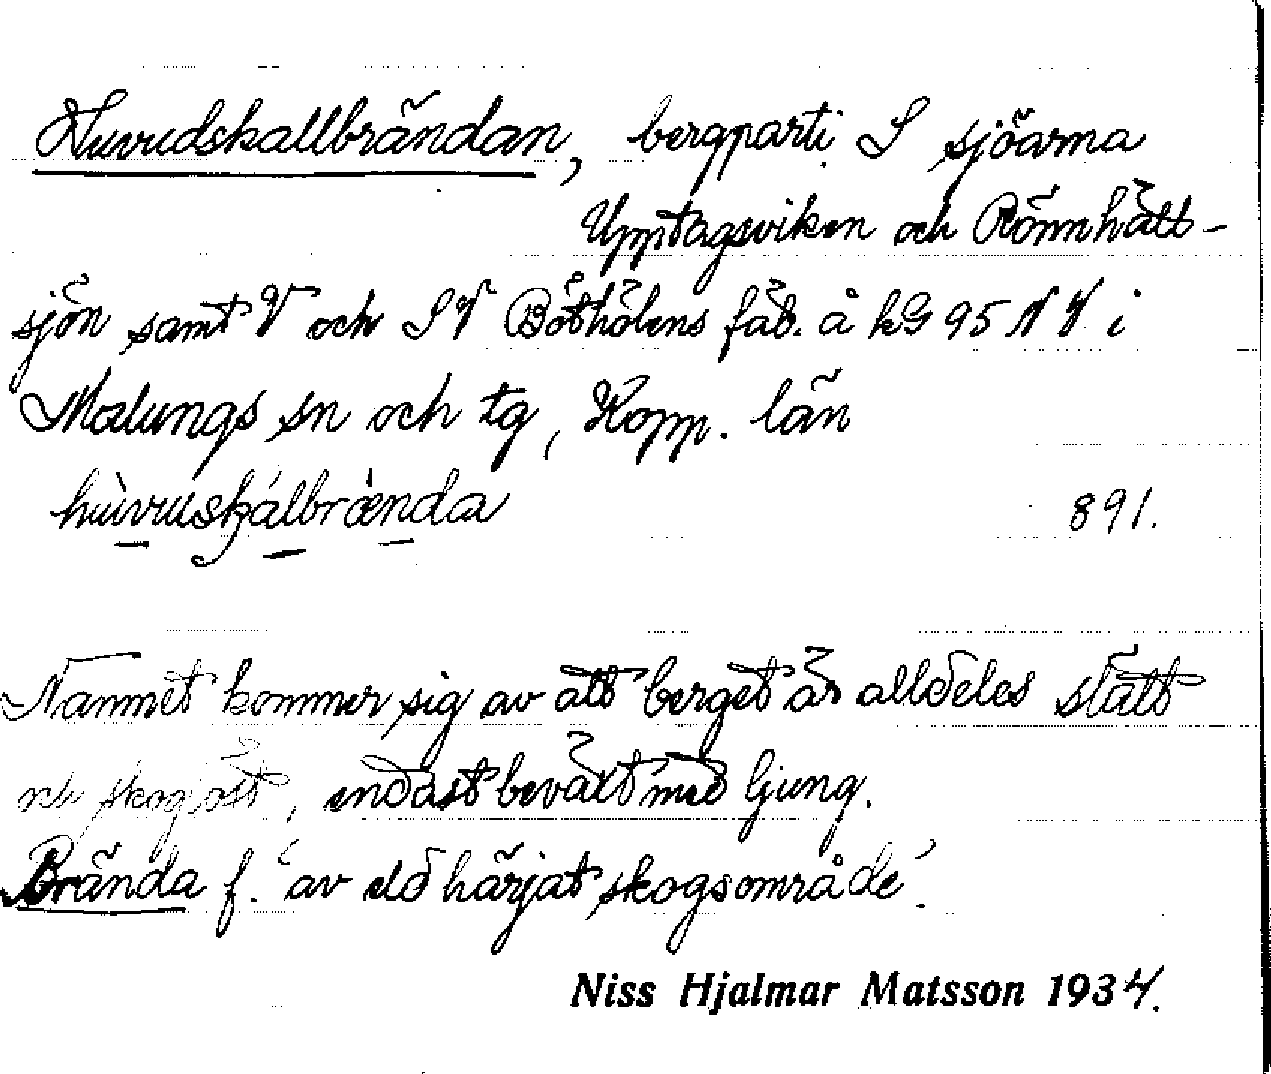 Huvudskallbrändan, bergparti S sjöarna
Upptagsviken och Rönnhätt-
sjön samt V och SV Böthölens fäb. å kG 95 NV i
Malungs sn och tg, Kopp. län
hùvuskálbrænda 891.
Namnet kommer sig av att berget är alldeles slätt
och skoglöst, endast beväxt med ljung.
Brända f. 'av eld härjat skogsområde'.
Niss Hjalmar Matsson 1934.